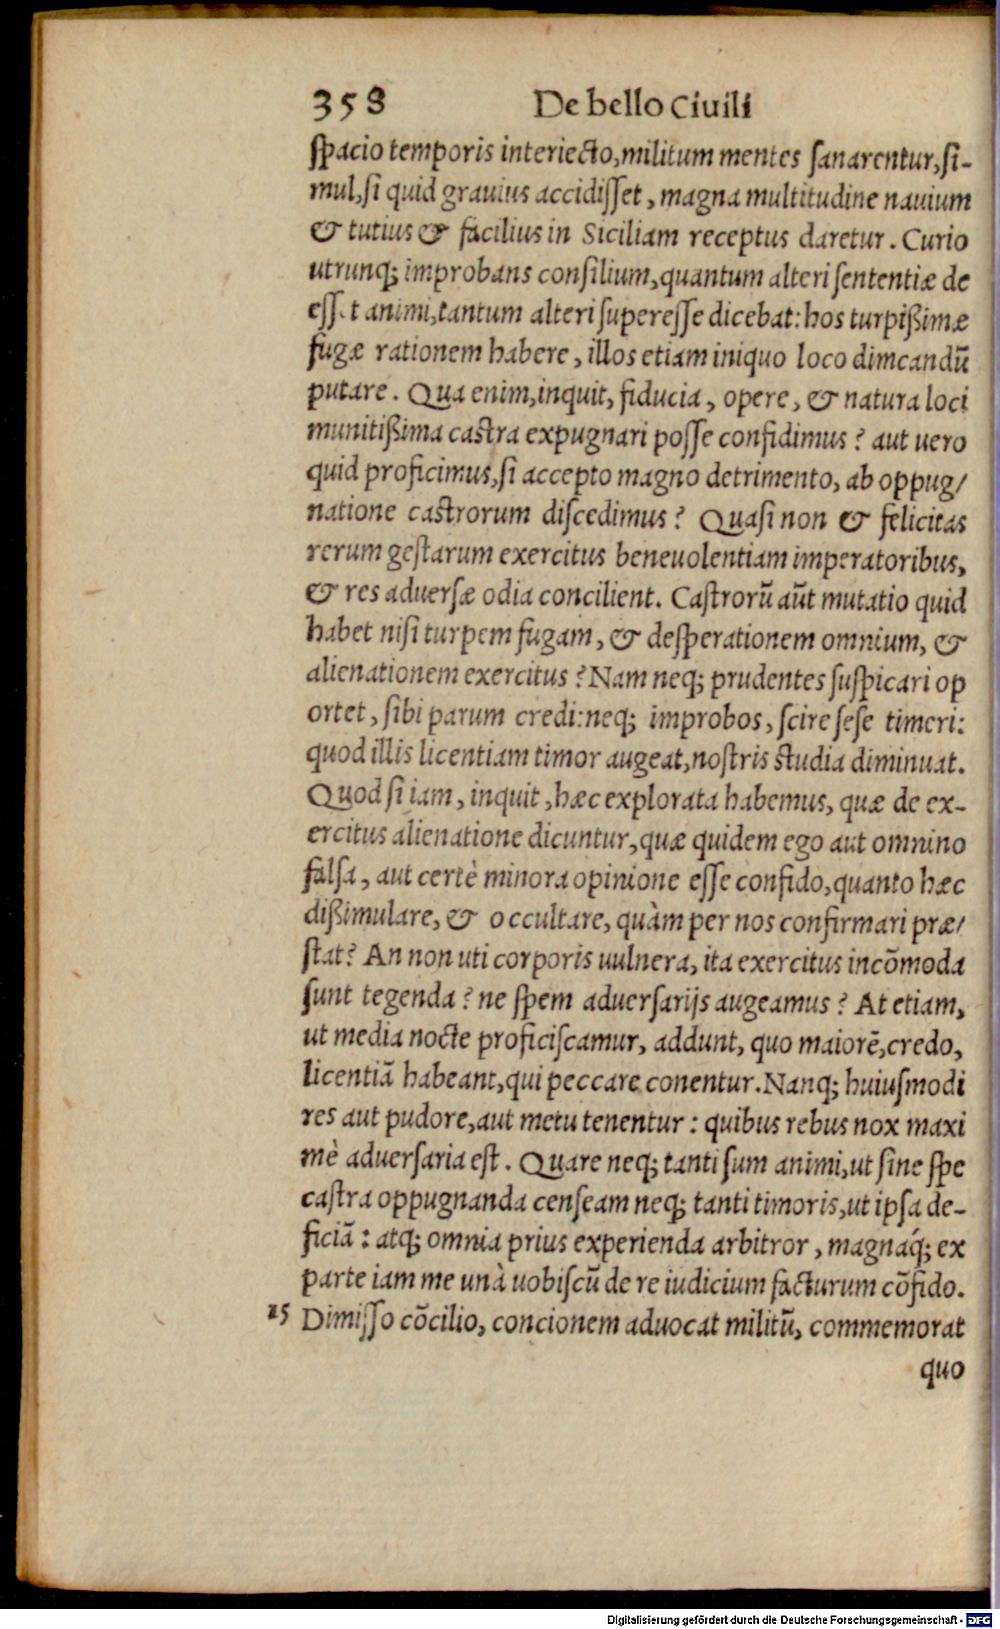 358 De bello Ciuili
spacio temporis interiecto, militum mentes sanarentur, si-
mul, si quid grauius accidisset, magna multitudine nauium
& tutius & facilius in Siciliam receptus daretur. Curio
utrunq; improbans consilium, quantum alteri sententiæ de
esset animi, tantum alteri superesse dicebat: hos turpißimæ
fugæ rationem habere, illos etiam iniquo loco dimcandū
putare. Qua enim, inquit, fiducia, opere, & natura loci
munitißima castra expugnari posse confidimus? aut uero
quid proficimus, si accepto magno detrimento, ab oppug/
natione castrorum discedimus? Quasi non & felicitas
rerum gestarum exercitus beneuolentiam imperatoribus,
& res aduersæ odia concilient. Castrorū aūt mutatio quid
habet nisi turpem fugam, & desperationem omnium, &
alienationem exercitus? Nam neq; prudentes suspicari op
ortet, sibi parum credi: neq; improbos, scire sese timeri:
quod illis licentiam timor augeat, nostris studia diminuat.
Quod si iam, inquit, hæc explorata habemus, quæ de ex-
ercitus alienatione dicuntur, quæ quidem ego aut omnino
falsa, aut certè minora opinione esse confido, quanto hæc
dißimulare, & occultare, quàm per nos confirmari præ/
stat? An non uti corporis uulnera, ita exercitus incōmoda
sunt tegenda? ne spem aduersarijs augeamus? At etiam,
ut media nocte proficiscamur, addunt, quo maiorē, credo,
licentiā habeant, qui peccare conentur. Nanq; huiusmodi
res aut pudore, aut metu tenentur: quibus rebus nox maxi
mè aduersaria est. Quare neq; tanti sum animi, ut sine spe
castra oppugnanda censeam neq; tanti timoris, ut ipsa de-
ficiā: atq; omnia prius experienda arbitror, magnaq́; ex
parte iam me unà uobiscū de re iudicium facturum cōfido.
25 Dimisso cōcilio, concionem aduocat militū, commemorat
quo
Digitalisierung gefördert durch die Deutsche Forschungsgemeinschaft - DFG